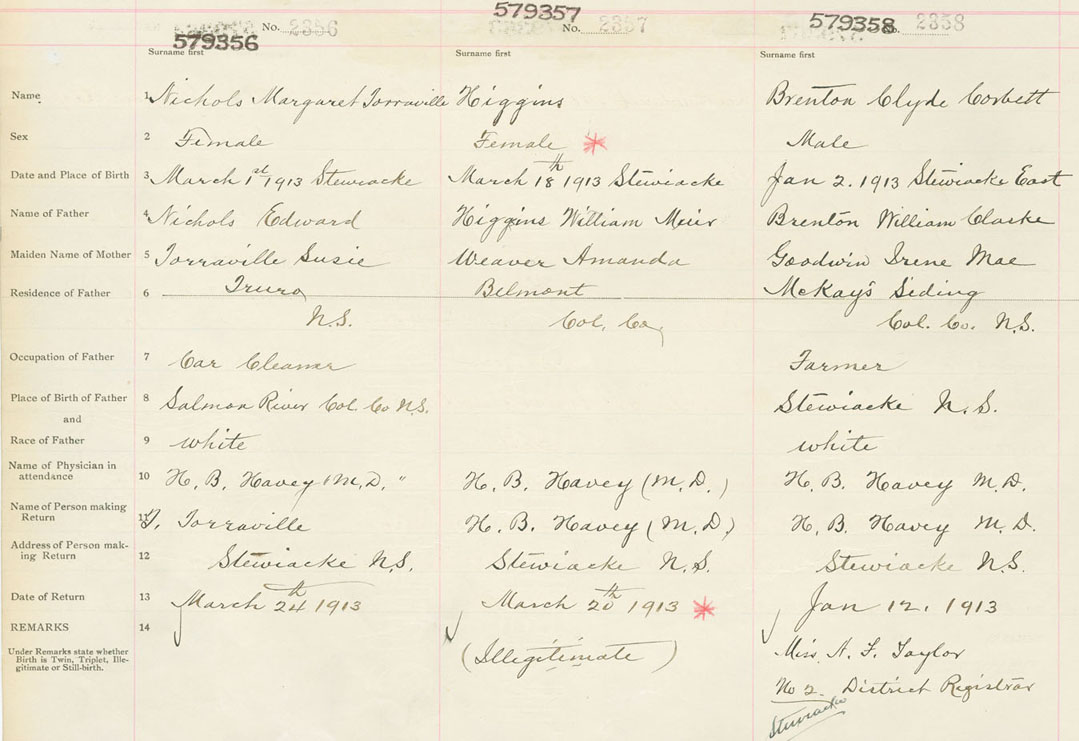 No. 2356 579357 No. 2357 579358 No. 2358
579356
Surname first Surname first Surname first
Name 1 Nichols Margaret Torraville Higgins Brenton Clyde Corbett
Sex 2 Female Female Male
Date and Place of Birth 3 March 1st 1913 Stewiacke March 18th 1913 Stewiacke Jan 2. 1913 Stewiacke East
Name of Father 4 Nichols Edward Higgins William Muir Brenton William Clarke
Maiden Name of Mother 5 Torraville Susie Weaver Amanda Goodwin Irene Mae
Residence of Father 6 Truro Belmont McKay's Siding
N.S. Col. Co. Col. Co. N.S.
Occupation of Father 7 Car Cleaner Farmer
Place of Birth of Father 8 Salmon River Col. Co N.S. Stewiacke N.S.
and
Race of Father 9 white white
Name of Physician in
attendance 10 H. B. Havey M.D. " H. B. Havey (M.D.) H. B. Havey M.D.
Name of Person making
Return 11 Torraville H. B. Havey (M.D.) H. B. Havey M.D.
Address of Person mak-
ing Return 12 Stewiacke N.S. Stewiacke N.S. Stewiacke N.S.
Date of Return 13 March 24th 1913 March 20th 1913 Jan 12. 1913
REMARKS 14
Under Remarks state whether
Birth is Twin, Triplet, Ille-
gitimate or Still-birth.
(Illegitimate) Miss A. F. Taylor
No 2. District Registrar
Stewiacke